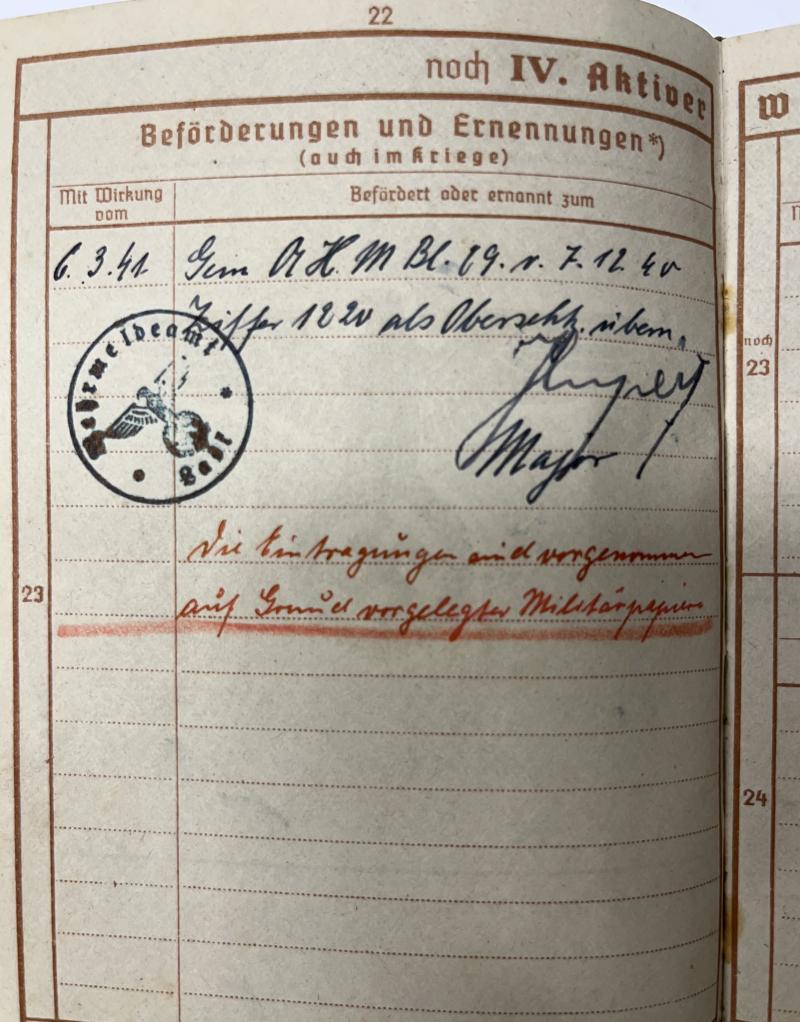 22
noch IV. Aktiver
W
Beförderungen und Ernennungen*)
(auch im Kriege)
Mit Wirkung
vom
Befördert oder ernannt zum
6. 3. 41 Gem A H. M Bl. 29. v. 7. 12. 40
Ziffer 1220 als Oberschtz. übern.
Wehrmeldeamt
Major
noch
23
Die Eintragungen sind vorgenommen
auf Grund vorgelegter Militärpapiere
23
24